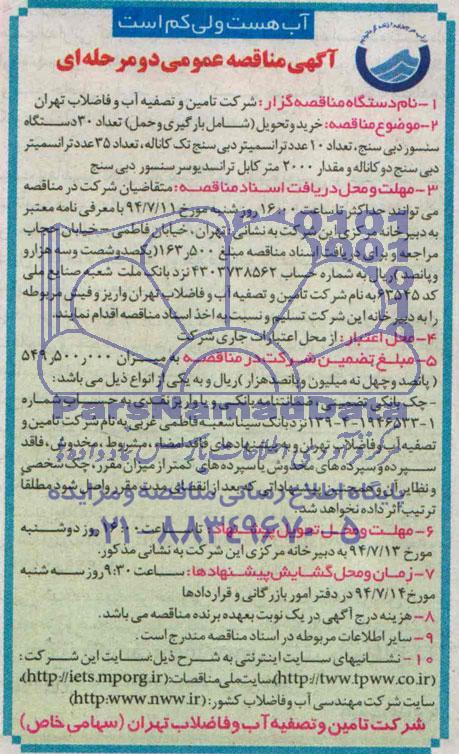 آب هست ولی کم است
آگهی مناقصه عمومی دو مرحله ای
۱- نام دستگاه مناقصه گزار : شرکت تامین و تصفیه آب و فاضلاب تهران
۲- موضوع مناقصه: خرید و تحویل (شامل بارگیری و حمل) تعداد ۳۰ دستگاه
سنسور دبی سنج، تعداد ۱۰ عدد ترانسمیتر دبی سنج تک کاناله، تعداد ۳۵ عدد ترانسمیتر
دبی سنج دو کاناله و مقدار ۲۰۰۰ متر کابل ترانسدیوسر سنسور دبی سنج
۳- مهلت و محل دریافت اسناد مناقصه: متقاضیان شرکت در مناقصه
می توانند حداکثر تا ساعت ۱۶:۰۰ روز شنبه مورخ ۹۴/۷/۱۱ با معرفی نامه معتبر
به دبیرخانه مرکزی این شرکت به نشانی تهران، خیابان فاطمی - خیابان حجاب
مراجعه و برای دریافت اسناد مناقصه مبلغ ۱۶۳,۵۰۰ (یکصد و شصت و سه هزار و
پانصد) ریال به شماره حساب ۴۳۰۳۷۳۸۵۶۲ نزد بانک ملت شعبه صنایع ملی
کد ۶۳۵۴۵ به نام شرکت تامین و تصفیه آب و فاضلاب تهران واریز و فیش مربوطه
را به دبیرخانه این شرکت تسلیم و نسبت به اخذ اسناد مناقصه اقدام نمایند.
۴- محل اعتبار: از محل اعتبارات جاری شرکت
۵- مبلغ تضمین شرکت در مناقصه به میزان ۵۴۹,۵۰۰,۰۰۰
(پانصد و چهل نه میلیون و پانصد هزار) ریال و به یکی از انواع ذیل می باشد:
- چک بانکی تضمینی، ضمانتنامه بانکی و یا واریز نقدی به حساب شماره
۱-۱۹۴۶۵۳۳-۴-۱۳۹ نزد بانک سینا شعبه فاطمی غربی به نام شرکت تامین و
تصفیه آب و فاضلاب تهران و به پیشنهادهای فاقد امضاء، مشروط، مخدوش، فاقد
سپرده و سپرده های مخدوش یا سپرده های کمتر از میزان مقرر، چک شخصی
و نظایر آن و همچنین پیشنهاداتی که بعد از انقضای مدت مقرر واصل شود مطلقا
ترتیب اثر داده نخواهد شد.
۶- مهلت و محل تحویل پیشنهاد: تا ساعت ۱۶:۰۰ روز دوشنبه
مورخ ۹۴/۷/۱۳ به دبیرخانه مرکزی این شرکت به نشانی مذکور.
۷- زمان و محل گشایش پیشنهادها: ساعت ۹:۳۰ روز سه شنبه
مورخ ۹۴/۷/۱۴ در دفتر امور بازرگانی و قراردادها
۸- هزینه درج آگهی در یک نوبت بعهده برنده مناقصه می باشد.
۹- سایر اطلاعات مربوطه در اسناد مناقصه مندرج است.
۱۰- نشانیهای سایت اینترنتی به شرح ذیل: سایت این شرکت:
(http://tww.tpww.co.ir)، سایت ملی مناقصات: (http://iets.mporg.ir)،
سایت شرکت مهندسی آب و فاضلاب کشور: (http:www.nww.ir)
شرکت تامین و تصفیه آب و فاضلاب تهران (سهامی خاص)
ParsNamadData
پایگاه اطلاع رسانی مناقصه و مزایده
۰۲۱-۸۸۳۴۹۶۷۰-۵